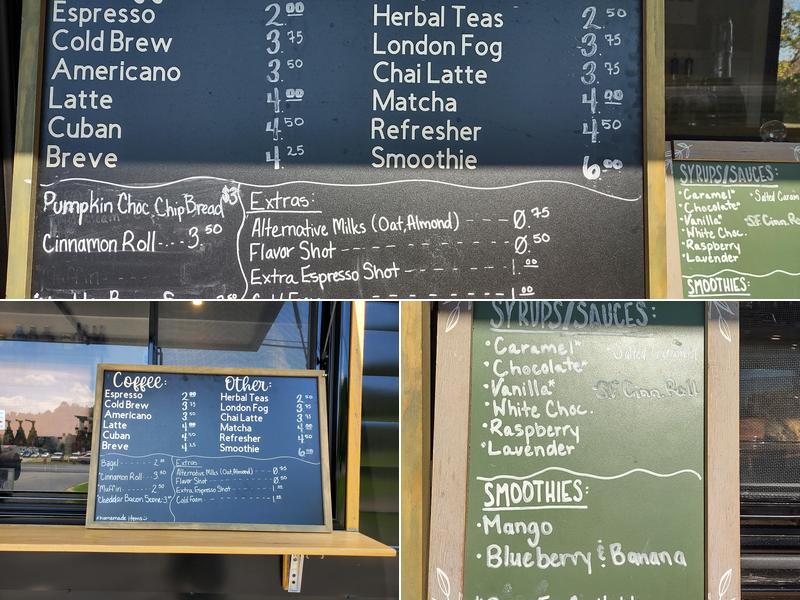 Espresso 2.00
Cold Brew 3.75
Americano 3.50
Latte 4.00
Cuban 4.50
Breve 4.25
Herbal Teas 2.50
London Fog 3.75
Chai Latte 3.75
Matcha 4.00
Refresher 4.50
Smoothie 6.00
Pumpkin Choc. Chip Bread $3
Cinnamon Roll ---- 3.50
Extras:
Alternative Milks (Oat, Almond) ---- 0.75
Flavor Shot ---- 0.50
Extra Espresso Shot ---- 1.00
SYRUPS/SAUCES:
Caramel*
Chocolate*
Vanilla*
White Choc.
Raspberry
Lavender
Salted Caram
SF Cinn. Ro
SMOOTHIES:
Coffee:
Espresso 2.00
Cold Brew 3.75
Americano 3.50
Latte 4.00
Cuban 4.50
Breve 4.25
Other:
Herbal Teas 2.50
London Fog 3.75
Chai Latte 3.75
Matcha 4.00
Refresher 4.50
Smoothie 6.00
Bagel ----
*Cinnamon Roll --- 3.50
*Muffin ---- 2.50
*Cheddar Bacon Scone-3
#homemade items
Extras:
Alternative Milks (Oat, Almond) ---- 0.75
Flavor Shot ---- 0.50
Extra Espresso Shot ---- 1.00
Cold Foam ---- 1.00
SYRUPS/SAUCES:
• Caramel*
• Chocolate*
• Vanilla*
• White Choc.
• Raspberry
• Lavender
• Salted Caramel
SF Cinn. Roll
SMOOTHIES:
• Mango
• Blueberry & Banana